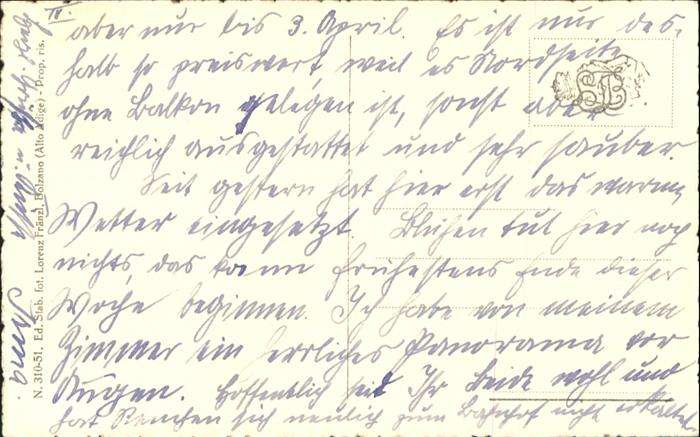 IV.
aber nur bis 3. April. Es ist nur des-
halb so preiswert, weil es Nordseite
ohne Balkon gelegen ist, sonst aber
reichlich ausgestattet und sehr sauber.
Seit gestern hat hier erst das warme
Wetter eingesetzt. Blühen tut hier noch
nichts, das kann frühestens Ende dieser
Woche beginnen. Ich habe von meinem
Zimmer ein herrliches Panorama vor
Augen. Hoffentlich seid Ihr Beide wohl und
hat sich neulich zum Bahnhof nicht erkältet.
N. 310-51. Ed. Stab. fot. Lorenz Fränzl, Bolzano (Alto Adige) - Prop. ris.